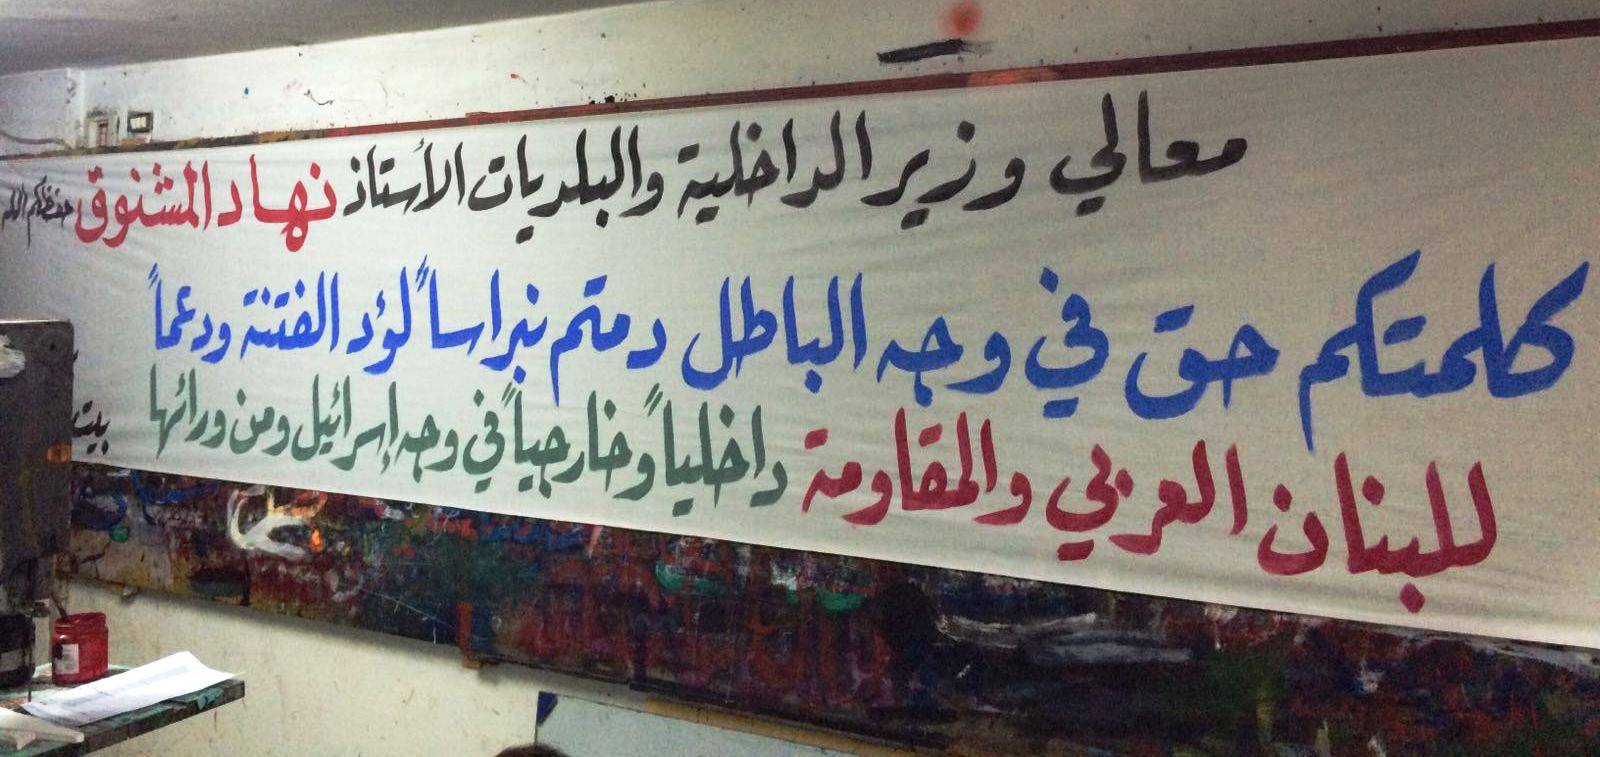 معالي وزير الداخلية والبلديات الأستاذ نهاد المشنوق حفظكم الله
كلمتكم حق في وجه الباطل دمتم نبراساً لؤد الفتنة ودعماً
للبنان العربي والمقاومة داخلياً وخارجياً في وجه إسرائيل ومن ورائها